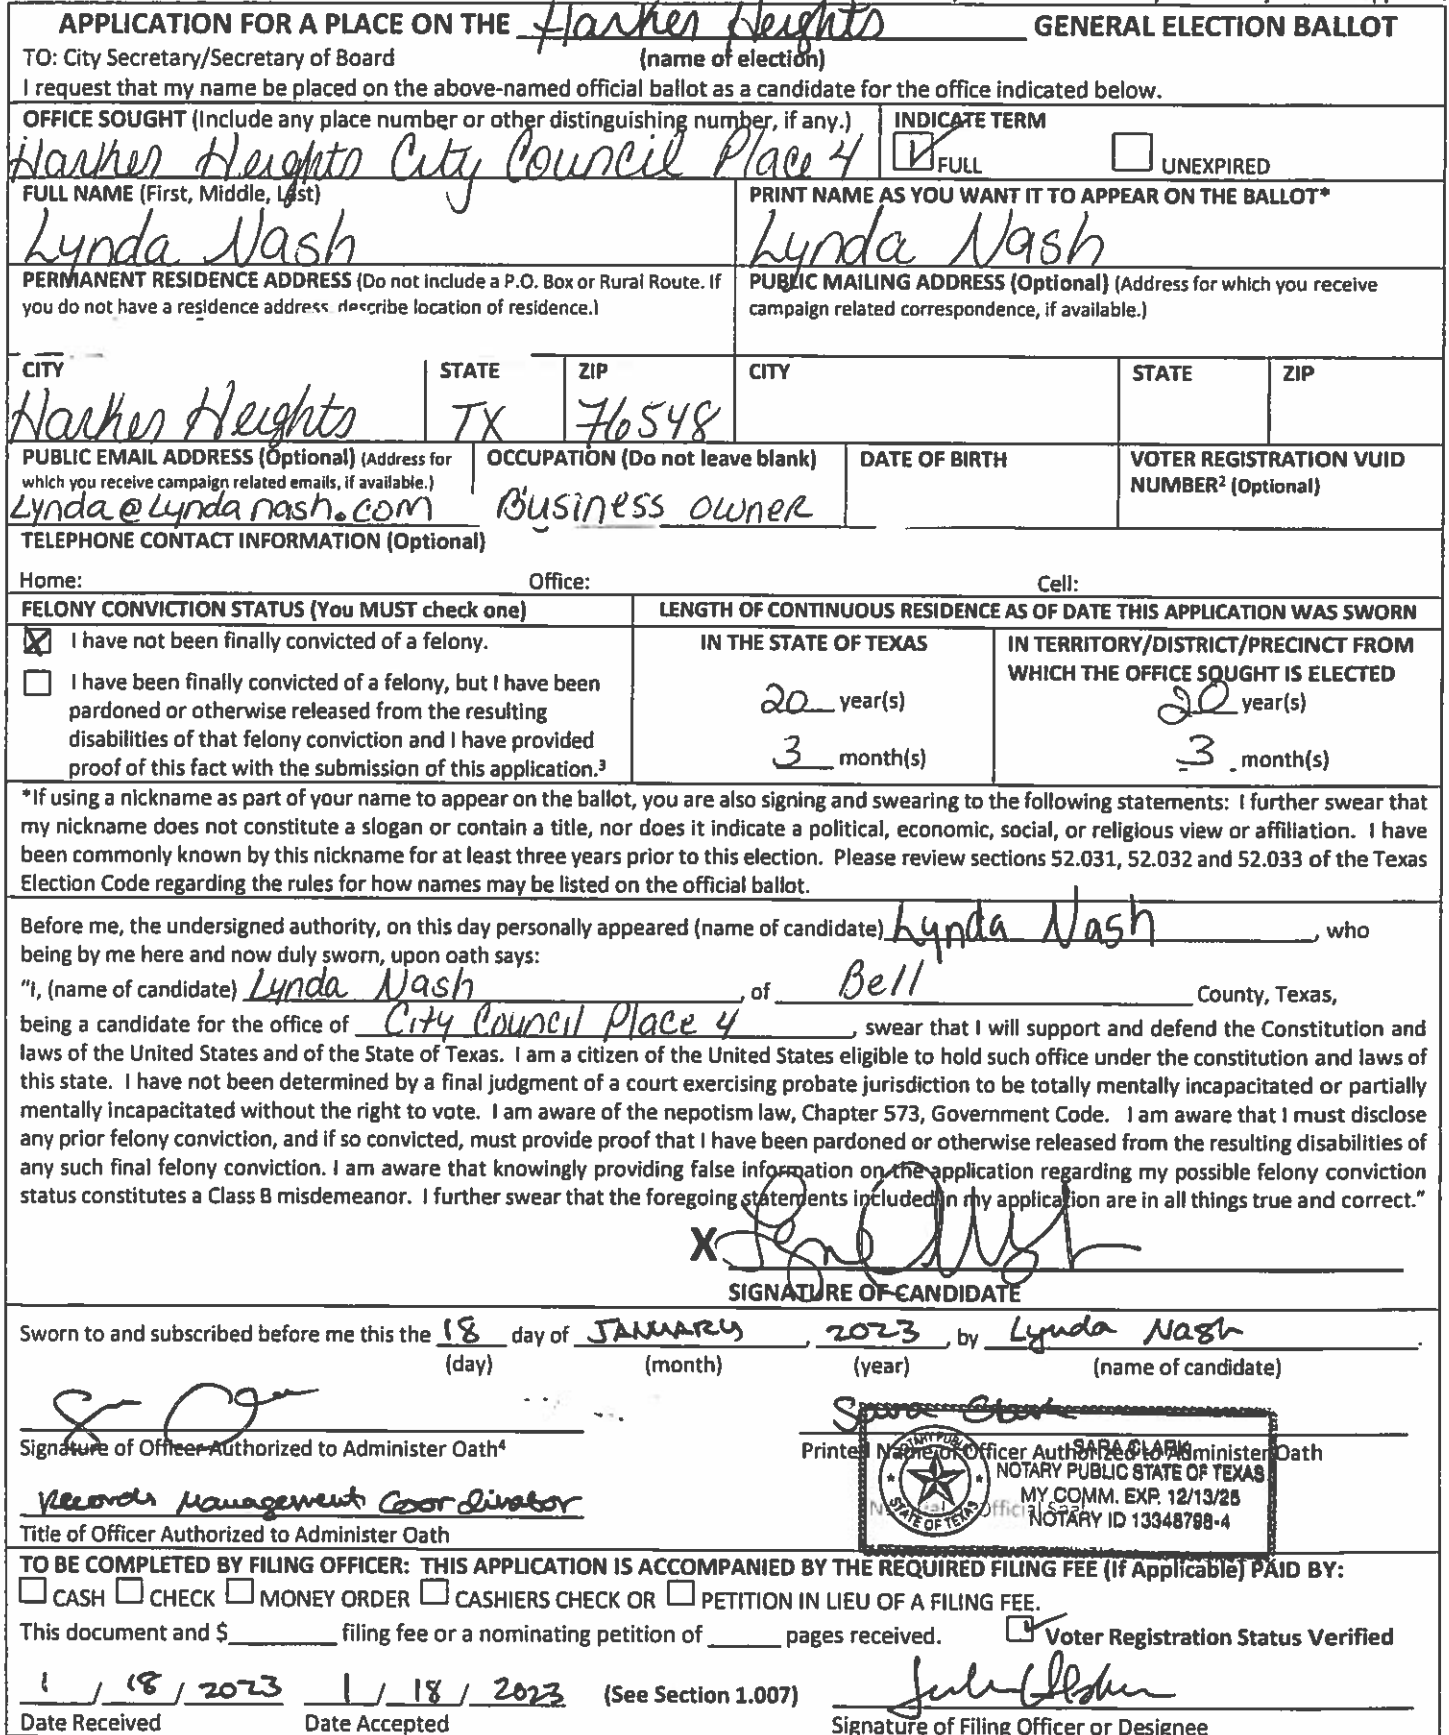 APPLICATION FOR A PLACE ON THE Harker Heights GENERAL ELECTION BALLOT
TO: City Secretary/Secretary of Board (name of election)
I request that my name be placed on the above-named official ballot as a candidate for the office indicated below.
OFFICE SOUGHT (Include any place number or other distinguishing number, if any.) INDICATE TERM
Harker Heights City Council Place 4 FULL UNEXPIRED
FULL NAME (First, Middle, Last) PRINT NAME AS YOU WANT IT TO APPEAR ON THE BALLOT*
Lynda Nash Lynda Nash
PERMANENT RESIDENCE ADDRESS (Do not include a P.O. Box or Rural Route. If PUBLIC MAILING ADDRESS (Optional) (Address for which you receive
you do not have a residence address, describe location of residence.) campaign related correspondence, if available.)
CITY STATE ZIP CITY STATE ZIP
Harker Heights TX 76548
PUBLIC EMAIL ADDRESS (Optional) (Address for OCCUPATION (Do not leave blank) DATE OF BIRTH VOTER REGISTRATION VUID
which you receive campaign related emails, if available.) NUMBER² (Optional)
Lynda@Lyndanash.com Business owner
TELEPHONE CONTACT INFORMATION (Optional)
Home: Office: Cell:
FELONY CONVICTION STATUS (You MUST check one) LENGTH OF CONTINUOUS RESIDENCE AS OF DATE THIS APPLICATION WAS SWORN
I have not been finally convicted of a felony. IN THE STATE OF TEXAS IN TERRITORY/DISTRICT/PRECINCT FROM
WHICH THE OFFICE SOUGHT IS ELECTED
I have been finally convicted of a felony, but I have been
pardoned or otherwise released from the resulting 20 year(s) 20 year(s)
disabilities of that felony conviction and I have provided
proof of this fact with the submission of this application.³ 3 month(s) 3 month(s)
*If using a nickname as part of your name to appear on the ballot, you are also signing and swearing to the following statements: I further swear that
my nickname does not constitute a slogan or contain a title, nor does it indicate a political, economic, social, or religious view or affiliation. I have
been commonly known by this nickname for at least three years prior to this election. Please review sections 52.031, 52.032 and 52.033 of the Texas
Election Code regarding the rules for how names may be listed on the official ballot.
Before me, the undersigned authority, on this day personally appeared (name of candidate) Lynda Nash, who
being by me here and now duly sworn, upon oath says:
"I, (name of candidate) Lynda Nash, of Bell County, Texas,
being a candidate for the office of City Council Place 4, swear that I will support and defend the Constitution and
laws of the United States and of the State of Texas. I am a citizen of the United States eligible to hold such office under the constitution and laws of
this state. I have not been determined by a final judgment of a court exercising probate jurisdiction to be totally mentally incapacitated or partially
mentally incapacitated without the right to vote. I am aware of the nepotism law, Chapter 573, Government Code. I am aware that I must disclose
any prior felony conviction, and if so convicted, must provide proof that I have been pardoned or otherwise released from the resulting disabilities of
any such final felony conviction. I am aware that knowingly providing false information on the application regarding my possible felony conviction
status constitutes a Class B misdemeanor. I further swear that the foregoing statements included in my application are in all things true and correct."
X
SIGNATURE OF CANDIDATE
Sworn to and subscribed before me this the 18 day of JANUARY, 2023, by Lynda Nash.
(day) (month) (year) (name of candidate)
Sara Clark
Signature of Officer Authorized to Administer Oath⁴ Printed Name of Officer Authorized to Administer Oath
SARA CLARK
NOTARY PUBLIC STATE OF TEXAS
MY COMM. EXP. 12/13/25
NOTARY ID 13348798-4
NOTARY PUBLIC STATE OF TEXAS
Records Management Coordinator
Title of Officer Authorized to Administer Oath
TO BE COMPLETED BY FILING OFFICER: THIS APPLICATION IS ACCOMPANIED BY THE REQUIRED FILING FEE (If Applicable) PAID BY:
CASH CHECK MONEY ORDER CASHIERS CHECK OR PETITION IN LIEU OF A FILING FEE.
This document and $ filing fee or a nominating petition of pages received. Voter Registration Status Verified
1 / 18 / 2023 1 / 18 / 2023 (See Section 1.007)
Date Received Date Accepted Signature of Filing Officer or Designee